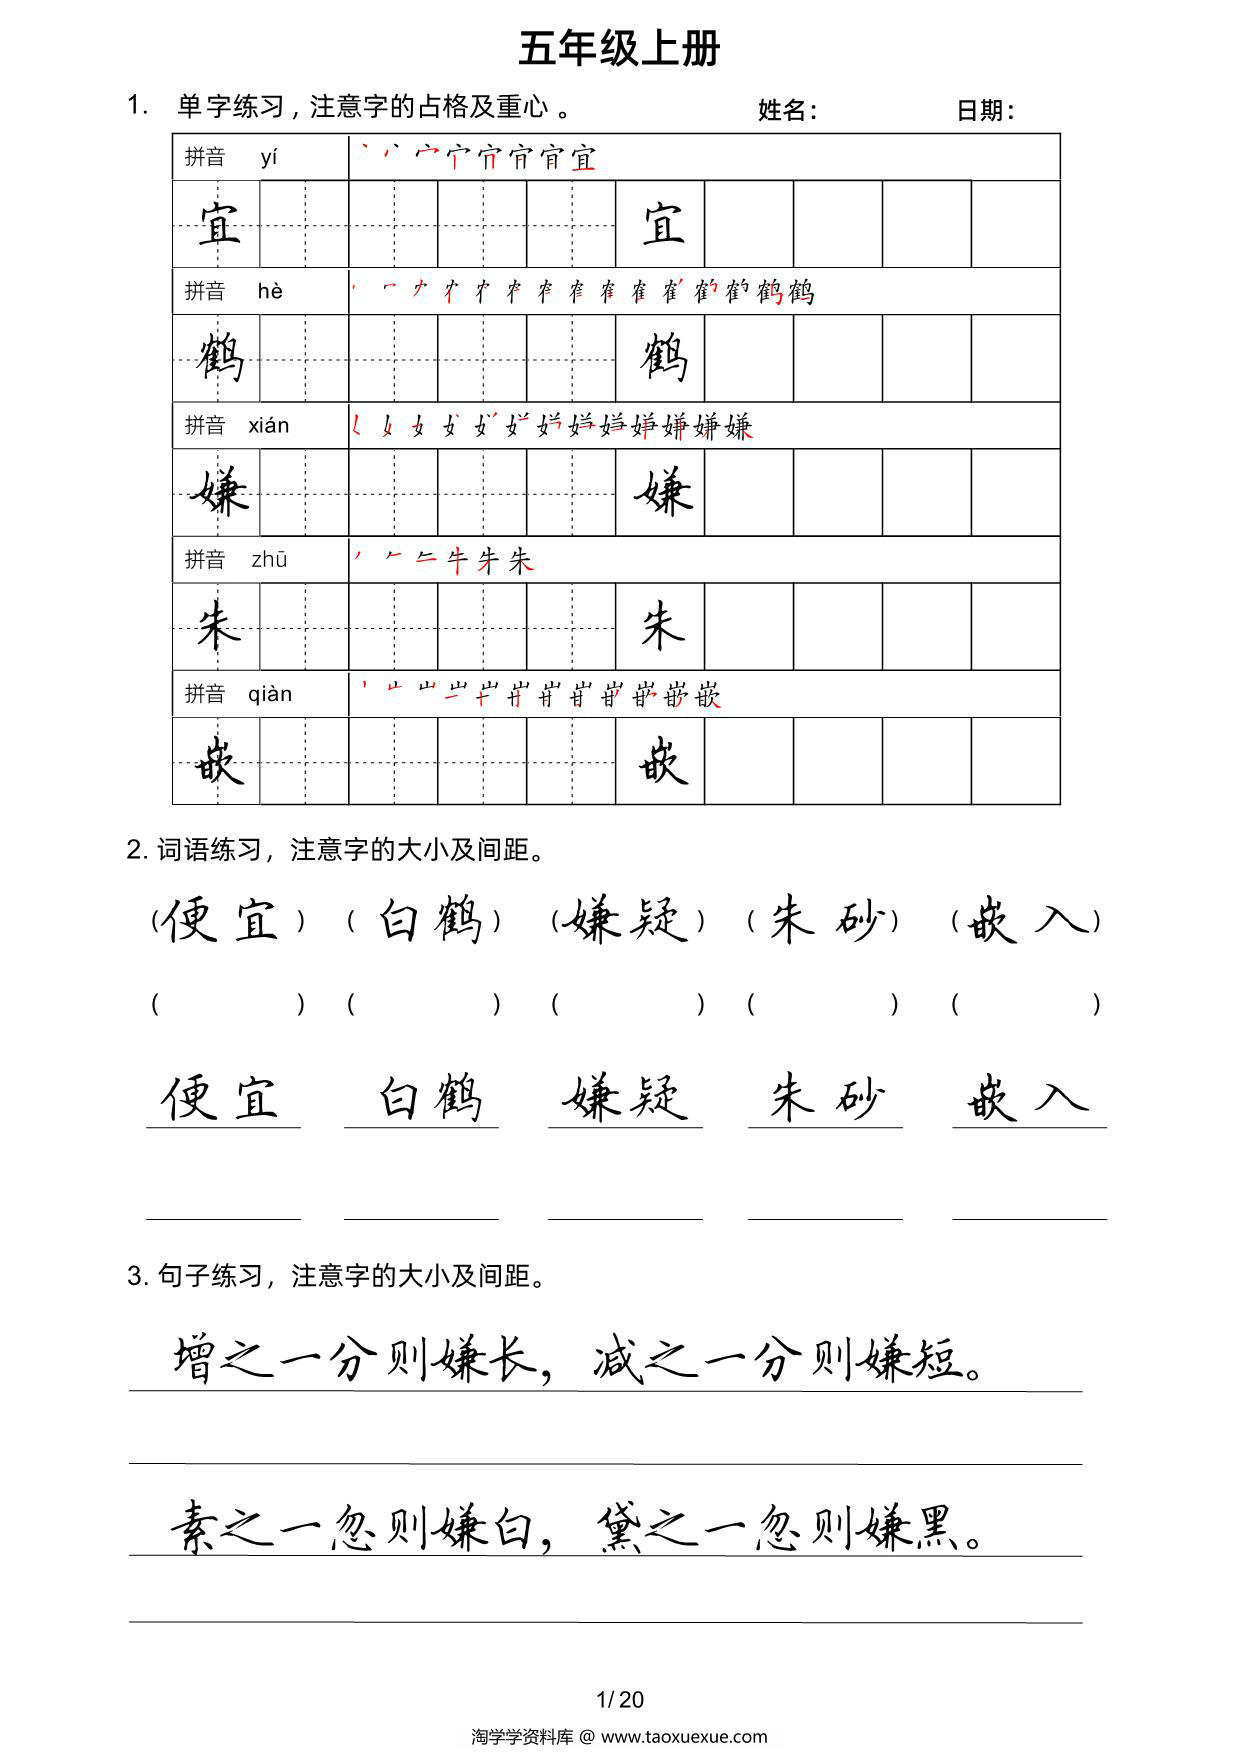 五年级上册
1. 单字练习，注意字的占格及重心。 姓名： 日期：
拼音 yí
宜 宜
拼音 hè
鹤 鹤
拼音 xián
嫌 嫌
拼音 zhū
朱 朱
拼音 qiàn
嵌 嵌
2. 词语练习，注意字的大小及间距。
（便宜）（白鹤）（嫌疑）（朱砂）（嵌入）
（ ）（ ）（ ）（ ）（ ）
便宜 白鹤 嫌疑 朱砂 嵌入
3. 句子练习，注意字的大小及间距。
增之一分则嫌长，减之一分则嫌短。
素之一忽则嫌白，黛之一忽则嫌黑。
1/20
淘学学资料库 @ www.taoxuexue.com